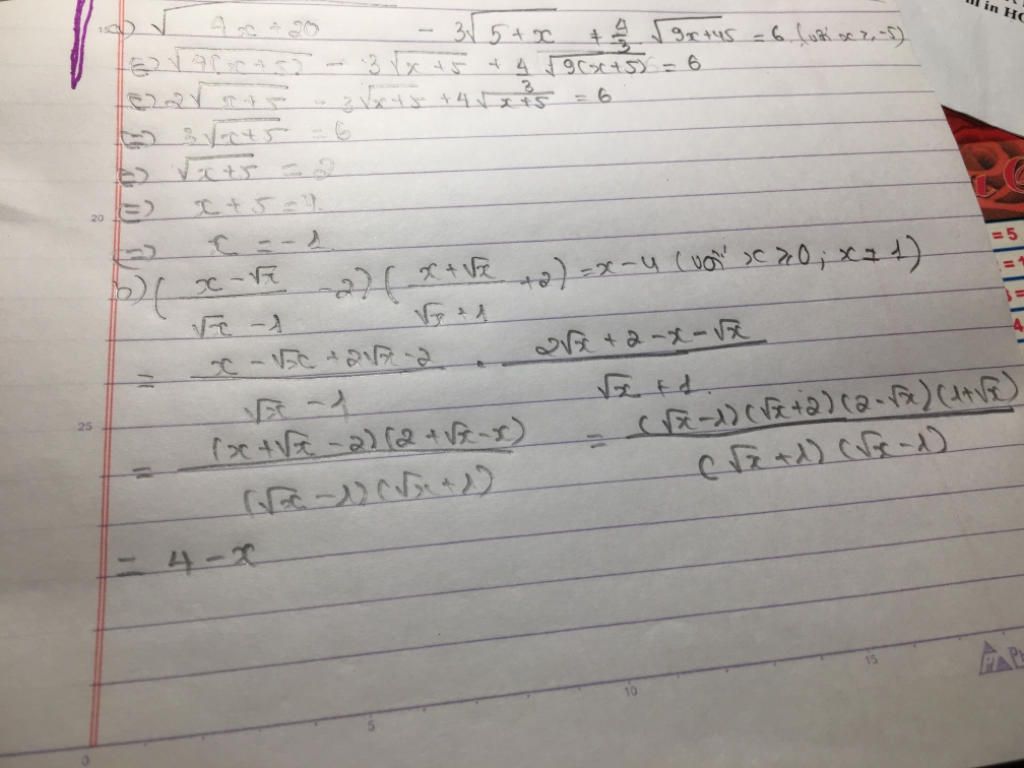 a) √4x+20 - 3√5+x + 4/3 √9x+45 = 6 (với x ≥ -5)
⇔ √4(x+5) - 3√x+5 + 4/3 √9(x+5) = 6
⇔ 2√x+5 - 3√x+5 + 4√x+5 = 6
⇔ 3√x+5 = 6
⇔ √x+5 = 2
⇔ x + 5 = 4
⇔ x = -1
b) (x-√x / √x-1 - 2)(x+√x / √x+1 + 2) = x-4 (với x ≥ 0; x ≠ 1)
= x-√x+2√x-2 / √x-1 . 2√x+2-x-√x / √x+1
= (x+√x-2)(2+√x-x) / (√x-1)(√x+1) = (√x-1)(√x+2)(2-√x)(1+√x) / (√x+1)(√x-1)
= 4-x
20
25
0
5
10
15
in HO
= 5
= 1
4